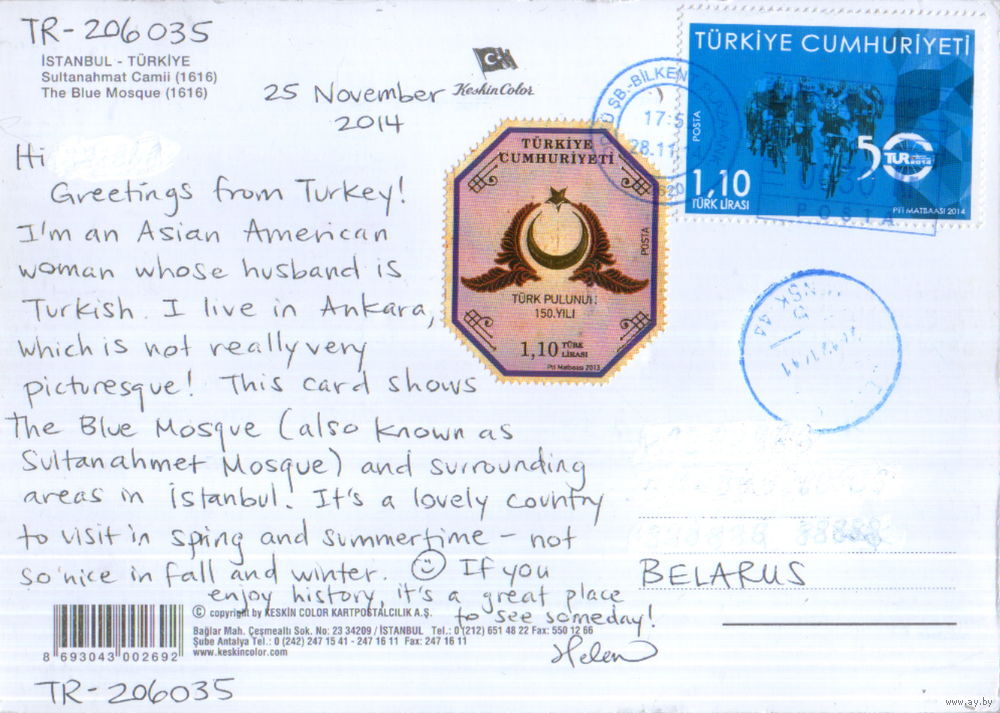 TR-206035
İSTANBUL - TÜRKİYE
Sultanahmat Camii (1616)
The Blue Mosque (1616)
KeskinColor
25 November
2014
Hi
Greetings from Turkey!
I'm an Asian American
woman whose husband is
Turkish. I live in Ankara,
which is not really very
picturesque! This card shows
the Blue Mosque (also known as
Sultanahmet Mosque) and surrounding
areas in İstanbul! It's a lovely country
to visit in spring and summertime - not
so nice in fall and winter. If you
enjoy history, it's a great place
to see someday!
Helen
TÜRKİYE
CUMHURİYETİ
POSTA
TÜRK PULUNUN
150.YILI
1,10 TÜRK
LİRASI
Ptt Matbaası 2013
TÜRKİYE CUMHURİYETİ
POSTA
50 TUR
2014
1,10
TÜRK LİRASI
PTT MATBAASI 2014
ŞB.-BİLKENT
17:5
28.11
POSTA
BELARUS
© copyright by KESKİN COLOR KARTPOSTALCILIK A.Ş.
Bağlar Mah. Çeşmealtı Sok. No: 23 34209 / İSTANBUL Tel.: 0 (212) 651 48 22 Fax: 550 12 66
Şube Antalya Tel.: 0 (242) 247 15 41 - 247 16 11 Fax: 247 16 11
www.keskincolor.com
8 693043 002692
TR-206035
www.ay.by